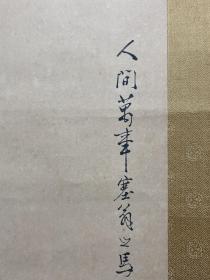 人間萬事塞翁之馬